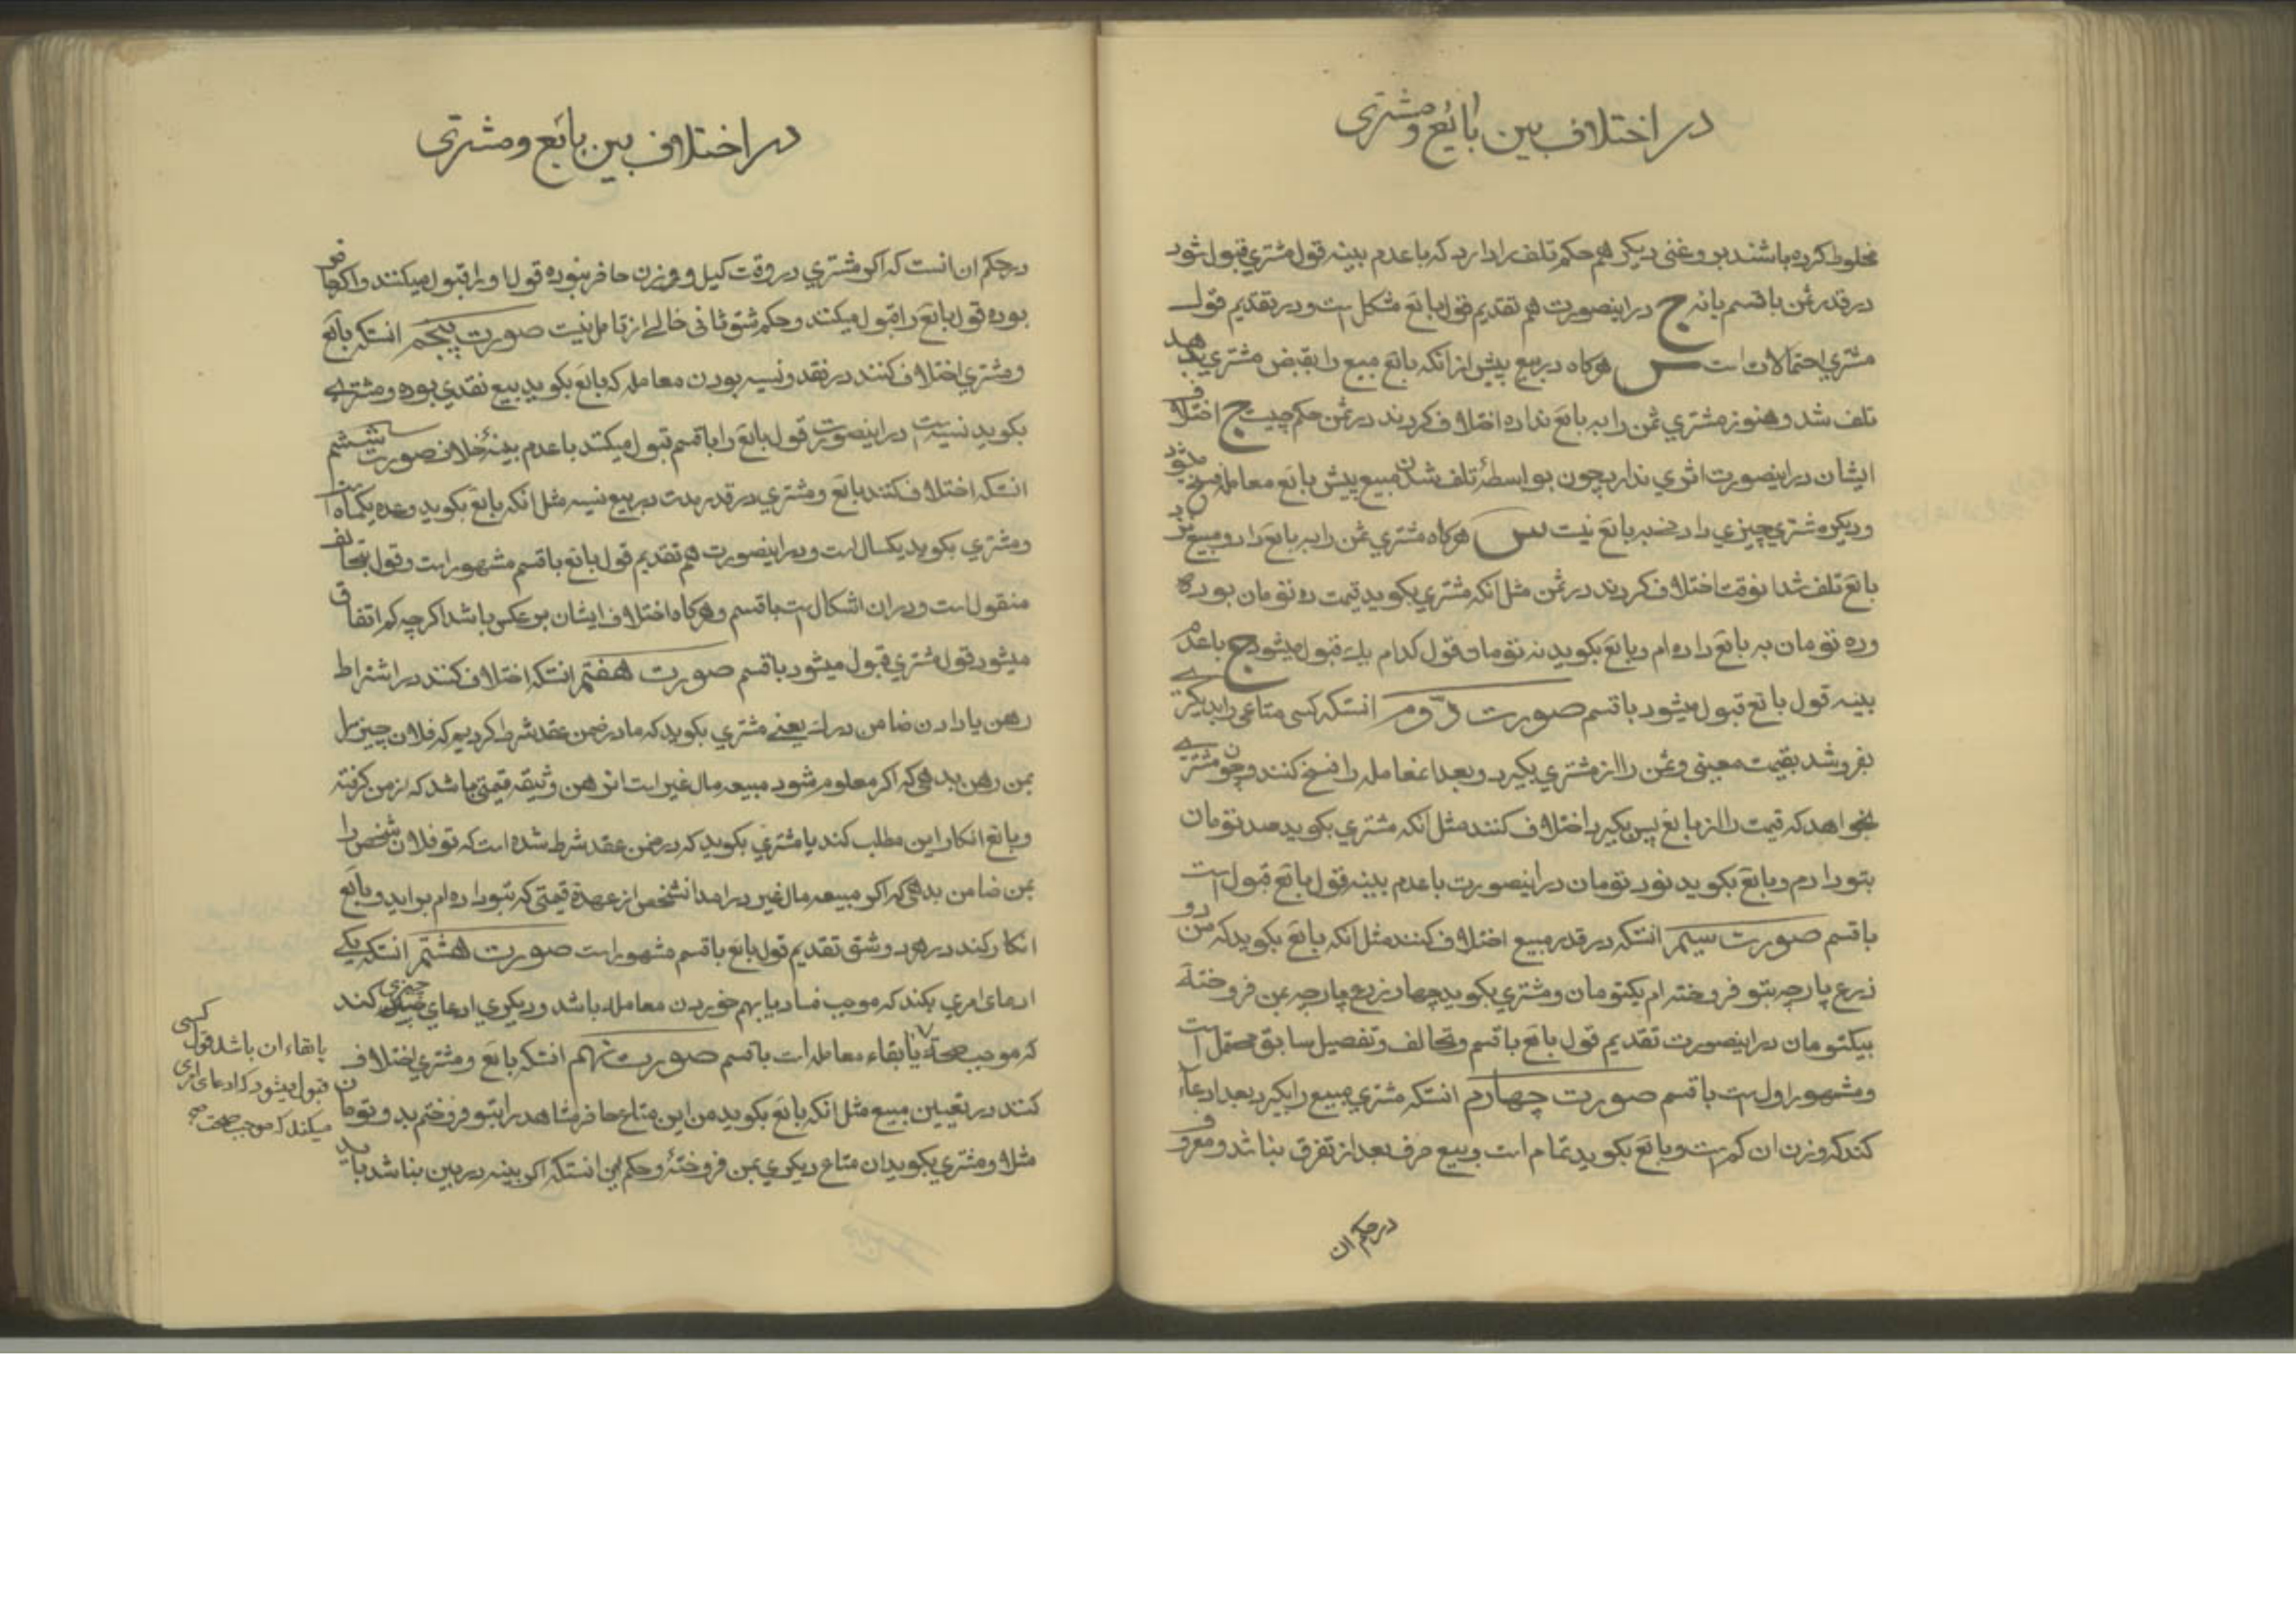 در اختلاف بین بائع و مشتری
مخلوط کرده باشند بروغنی دیکر هم حکم تلف را دارد که با عدم بینه قول مشتری قبول شود
در قدر ثمن با قسم یا نه ج در اینصورت هم تقدیم قول بائع مشکل است و در تقدیم قول
مشتری احتمالات است س هرکاه در بیع پیش از انکه بائع مبیع را بقبض مشتری بدهد
تلف شد و هنوز مشتری ثمن را ببر بائع نداده اختلاف کردند در ثمن حکم چیست ج اختلاف
ایشان در اینصورت اثری ندارد چون بواسطهٔ تلف شدن مبیع پیش بائع معامله فسخ میشود
و دیکر مشتری چیزی را در نمیبر بائع نیست س هرکاه مشتری ثمن را ببر بائع داد و مبیع نزد
بائع تلف شد انوقت اختلاف کردند در ثمن مثل انکه مشتری بکوید قیمت ده تومان بوده
و ده تومان به بائع داده ام و بایع بکوید نه تومان قول کدام یک قبول میشود ج با عدم
بینه قول بائع قبول میشود با قسم صورت دوم انستکه کسی متاعی را بدیکری
بفروشد بقیمت معینی و ثمن را از مشتری بکیرد و بعد انمعامله را فسخ کنند و چون مشتری
بخواهد که قیمت را از بائع پس بکیرد اختلاف کنند مثل انکه مشتری بکوید صد تومان
بتو دادم و بائع بکوید نود تومان در اینصورت با عدم بینه قول بائع قبول است
با قسم صورت سیم انستکه در قدر مبیع اختلاف کنند مثل انکه بائع بکوید که من دو
ذرع پارچه بتو فروخته ام بیکتومان و مشتری بکوید چهار ذرع پارچه بمن فروختهٔ
بیکتومان در اینصورت تقدیم قول بائع با قسم و تحالف و تفصیل سابق محتمل است
و مشهور اول است با قسم صورت چهارم انستکه مشتری مبیع را بکیرد بعد ادعاء
کند که وزن ان کم است و بائع بکوید تمام است و بیع صرف بعد از تفرق بناشد و معروف
در حکم ان
در اختلاف بین بائع و مشتری
در حکم ان انست که اکر مشتری در وقت کیل و وزن حاضر نبوده قول او را قبول میکنند و اکر حاضر
بوده قول بائع را قبول میکنند و حکم شق ثانی خالی از تامل نیست صورت پنجم انستکه بائع
و مشتری اختلاف کنند در نقد و نسیه بودن معامله که بائع بکوید بیع نقدی بوده و مشتری
بکوید نسیه است در اینصورت قول بائع را با قسم قبول میکنند با عدم بینهٔ خلاف صورت ششم
انستکه اختلاف کنند بائع و مشتری در قدر مدت در بیع نسیه مثل انکه بائع بکوید وعده یکماه است
و مشتری بکوید یکسال است و در اینصورت هم تقدیم قول بائع با قسم مشهور است و قول بتحالف
منقول است و در ان اشکال است با قسم و هرکاه اختلاف ایشان برعکس باشد اکرچه کم اتفاق
میشود قول مشتری قبول میشود با قسم صورت هفتم انستکه اختلاف کنند در اشتراط
رهن یا دادن ضامن درک یعنی مشتری بکوید که ما در ضمن عقد شرط کردیم که فلان چیز را
بمن رهن بدهی که اکر معلوم شود مبیعه مال غیر است ان رهن وثیقه قیمتی باشد که از من کرفته
و بائع انکار این مطلب کند یا مشتری بکوید که در ضمن عقد شرط شده است که تو فلان شخص را
بمن ضامن بدهی که اکر مبیعه مال غیر درامد انشخص از عهدهٔ قیمتی که بتو داده ام براید و بائع
انکار کند در هر دو شق تقدیم قول بائع با قسم مشهور است صورت هشتم انستکه یکی
ادعای امری بکند که موجب فساد یا بهم خوردن معامله باشد و دیکری ادعای چیزی کند
که موجب صحة یا بقاء معامله است با قسم صورت نهم انستکه بائع و مشتری اختلاف
کنند در تعیین مبیع مثل انکه بائع بکوید من این متاع حاضر مشاهد را بتو فروختم بدو تومان
مثلا و مشتری بکوید ان متاع دیکری بمن فروختهٔ و حکم این انستکه اکر بینه در بین بناشد باید
یا بقاء ان باشد قول کسی
قبول میشود که ادعای امری
میکند که موجب صحت